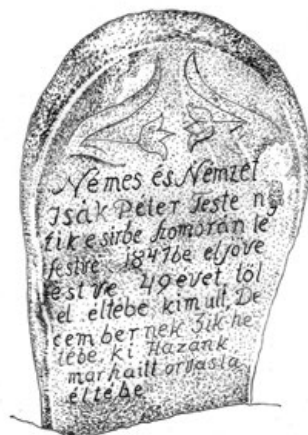 Nemes és Nemzet
Isák Péter teste ny
űik e sírbe szomorán le
festve 1847be eljove
festve 49 évet töl
el eltébe kimult De
cembernek 3ik he
tébe ki Hazánk
marhaitt orvasla
éltébe